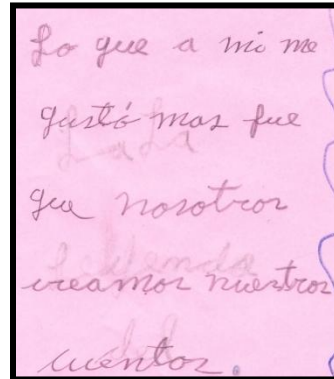 Lo que a mi me
gustó mas fue
que nosotros
creamos nuestros
cuentos.